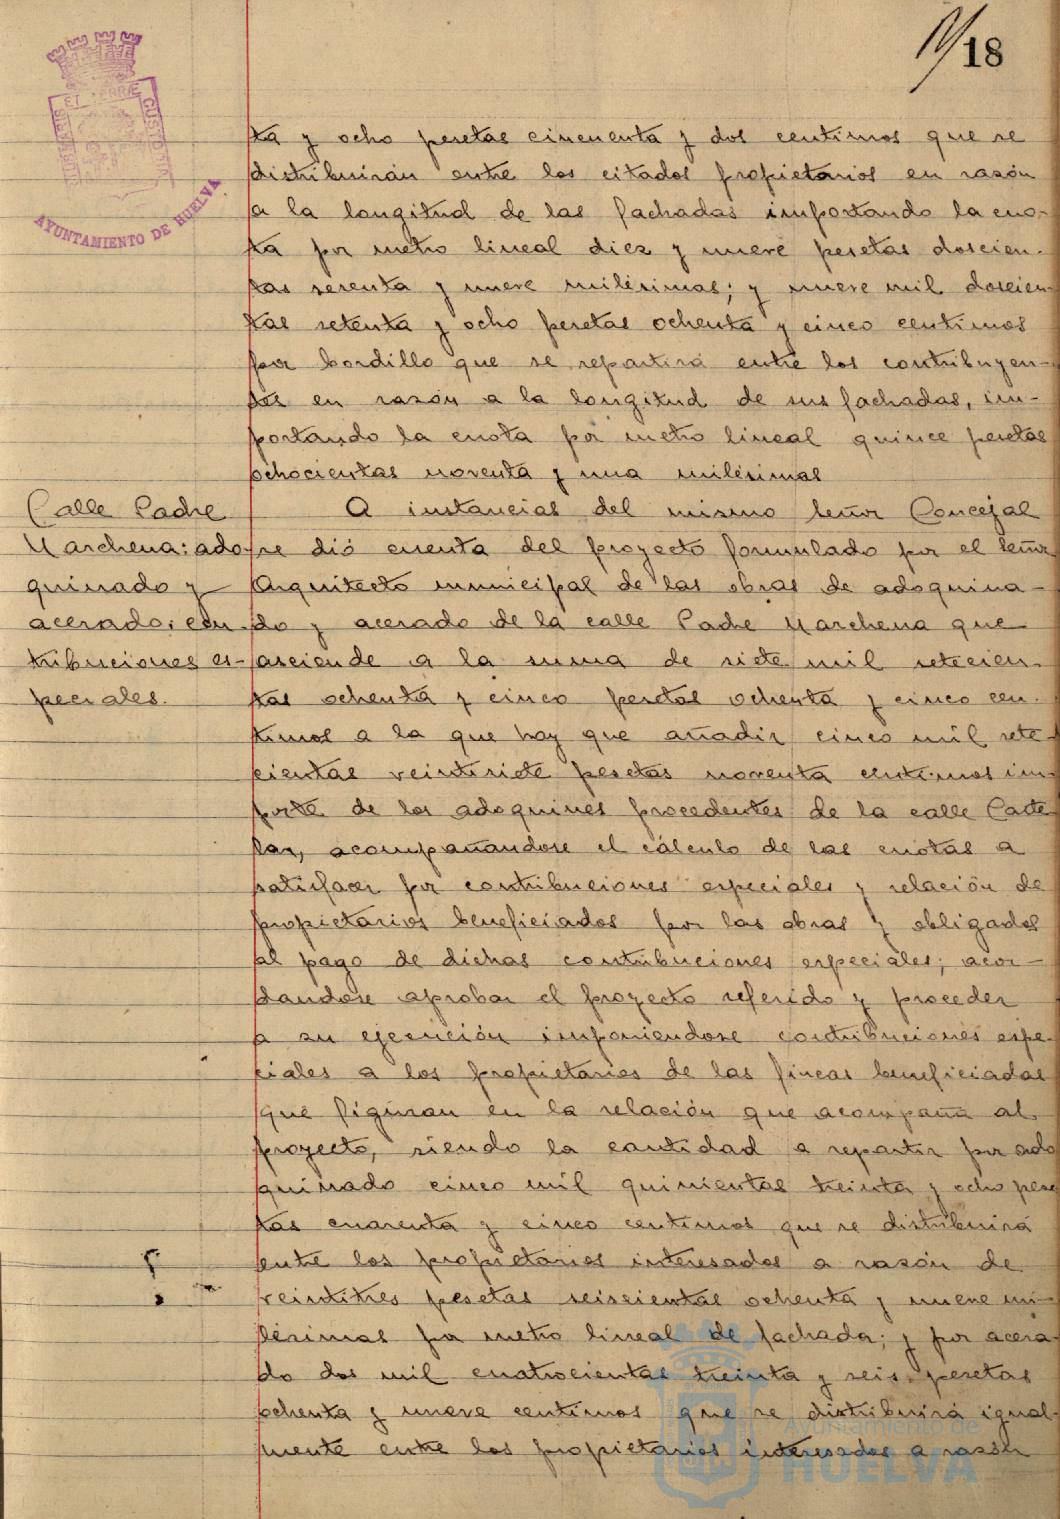 18
AYUNTAMIENTO DE HUELVA
ta y ocho pesetas cincuenta y dos centimos que se
distribuirán entre los citados propietarios en razón
a la longitud de las fachadas importando la cuo-
ta por metro lineal diez y nueve pesetas doscien-
tas sesenta y nueve milésimas; y nueve mil doscien-
tas setenta y ocho pesetas ochenta y cinco centimos
por bordillo que se repartirá entre los contribuyen-
tes en razón a la longitud de sus fachadas, im-
portando la cuota por metro lineal quince pesetas
ochocientas noventa y una milésimas
Calle Padre
Marchena: ado-
quinado y
acerado; con-
tribuciones es-
peciales.
A instancias del mismo Señor Concejal
se dió cuenta del proyecto formulado por el Señor
Arquitecto municipal de las obras de adoquina-
do y acerado de la calle Padre Marchena que
asciende a la suma de siete mil setecien-
tas ochenta y cinco pesetas ochenta y cinco cen-
timos a la que hay que añadir cinco mil sete-
cientas veintisiete pesetas noventa centimos im-
porte de los adoquines procedentes de la calle Caste
lar, acompañandose el cálculo de las cuotas a
satisfacer por contribuciones especiales y relación de
propietarios beneficiados por las obras y obligados
al pago de dichas contribuciones especiales; acor-
dandose aprobar el proyecto referido y proceder
a su ejecución imponiendose contribuciones espe-
ciales a los propietarios de las fincas beneficiadas
que figuran en la relación que acompaña al
proyecto, siendo la cantidad a repartir por ado
quinado cinco mil quinientas treinta y ocho pese
tas cuarenta y cinco centimos que se distribuirá
entre los propietarios interesados a razón de
veintitres pesetas seiscientas ochenta y nueve mi-
lésimas por metro lineal de fachada; y por acera-
do dos mil cuatrocientas treinta y seis pesetas
ochenta y nueve centimos que se distribuirá igual-
mente entre los propietarios interesados a razón
Ayuntamiento de
HUELVA